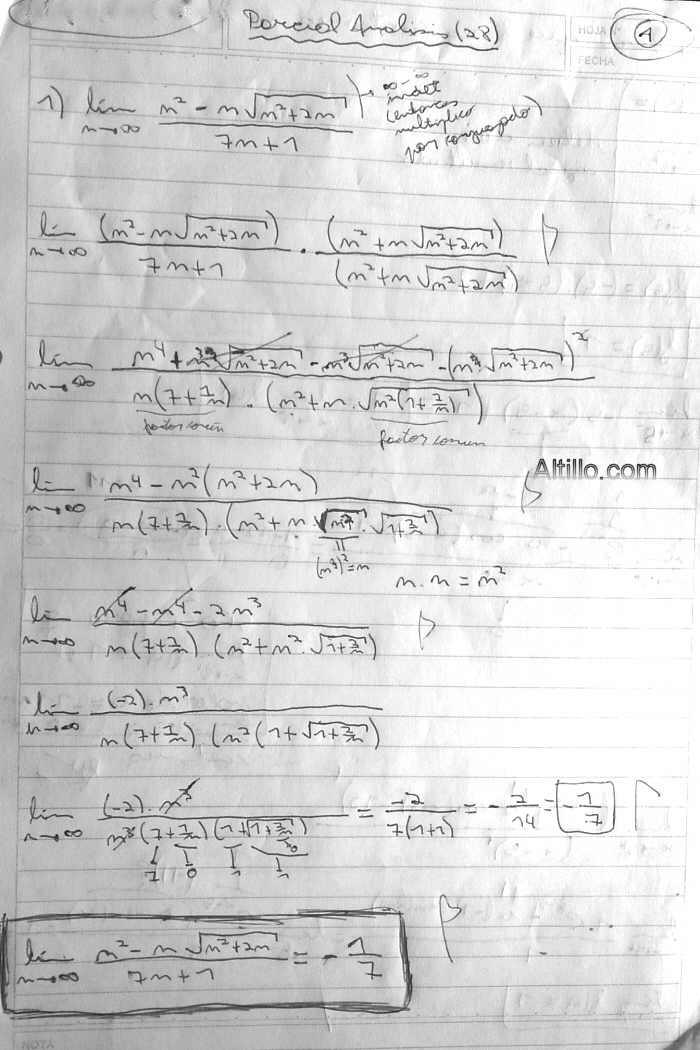 Parcial Analisis (28)
HOJA
1
FECHA
1) lim n→∞ (n² - n√(n²+2n)) / (7n+1) → ∞-∞ indet (entonces multiplico por conjugado)
lim n→∞ (n² - n√(n²+2n)) / (7n+1) · (n² + n√(n²+2n)) / (n² + n√(n²+2n))
lim n→∞ (n⁴ + n³√(n²+2n) - n³√(n²+2n) - (n√(n²+2n))²) / (n(7+1/n) · (n² + n·√(n²(1+2/n))))
factor común
factor comun
Altillo.com
lim n→∞ (n⁴ - n²(n²+2n)) / (n(7+1/n) · (n² + n·√n²·√(1+2/n)))
n·n = n²
lim n→∞ (n⁴ - n⁴ - 2n³) / (n(7+1/n) (n² + n²·√(1+2/n)))
lim n→∞ (-2)·n³ / (n(7+1/n) (n²(1+√(1+2/n))))
lim n→∞ (-2)·n³ / (n³(7+1/n)(1+√(1+2/n))) = -2 / 7(1+1) = -2/14 = -1/7
7 0 1 1
lim n→∞ (n² - n√(n²+2n)) / (7n+1) = -1/7
NOTA